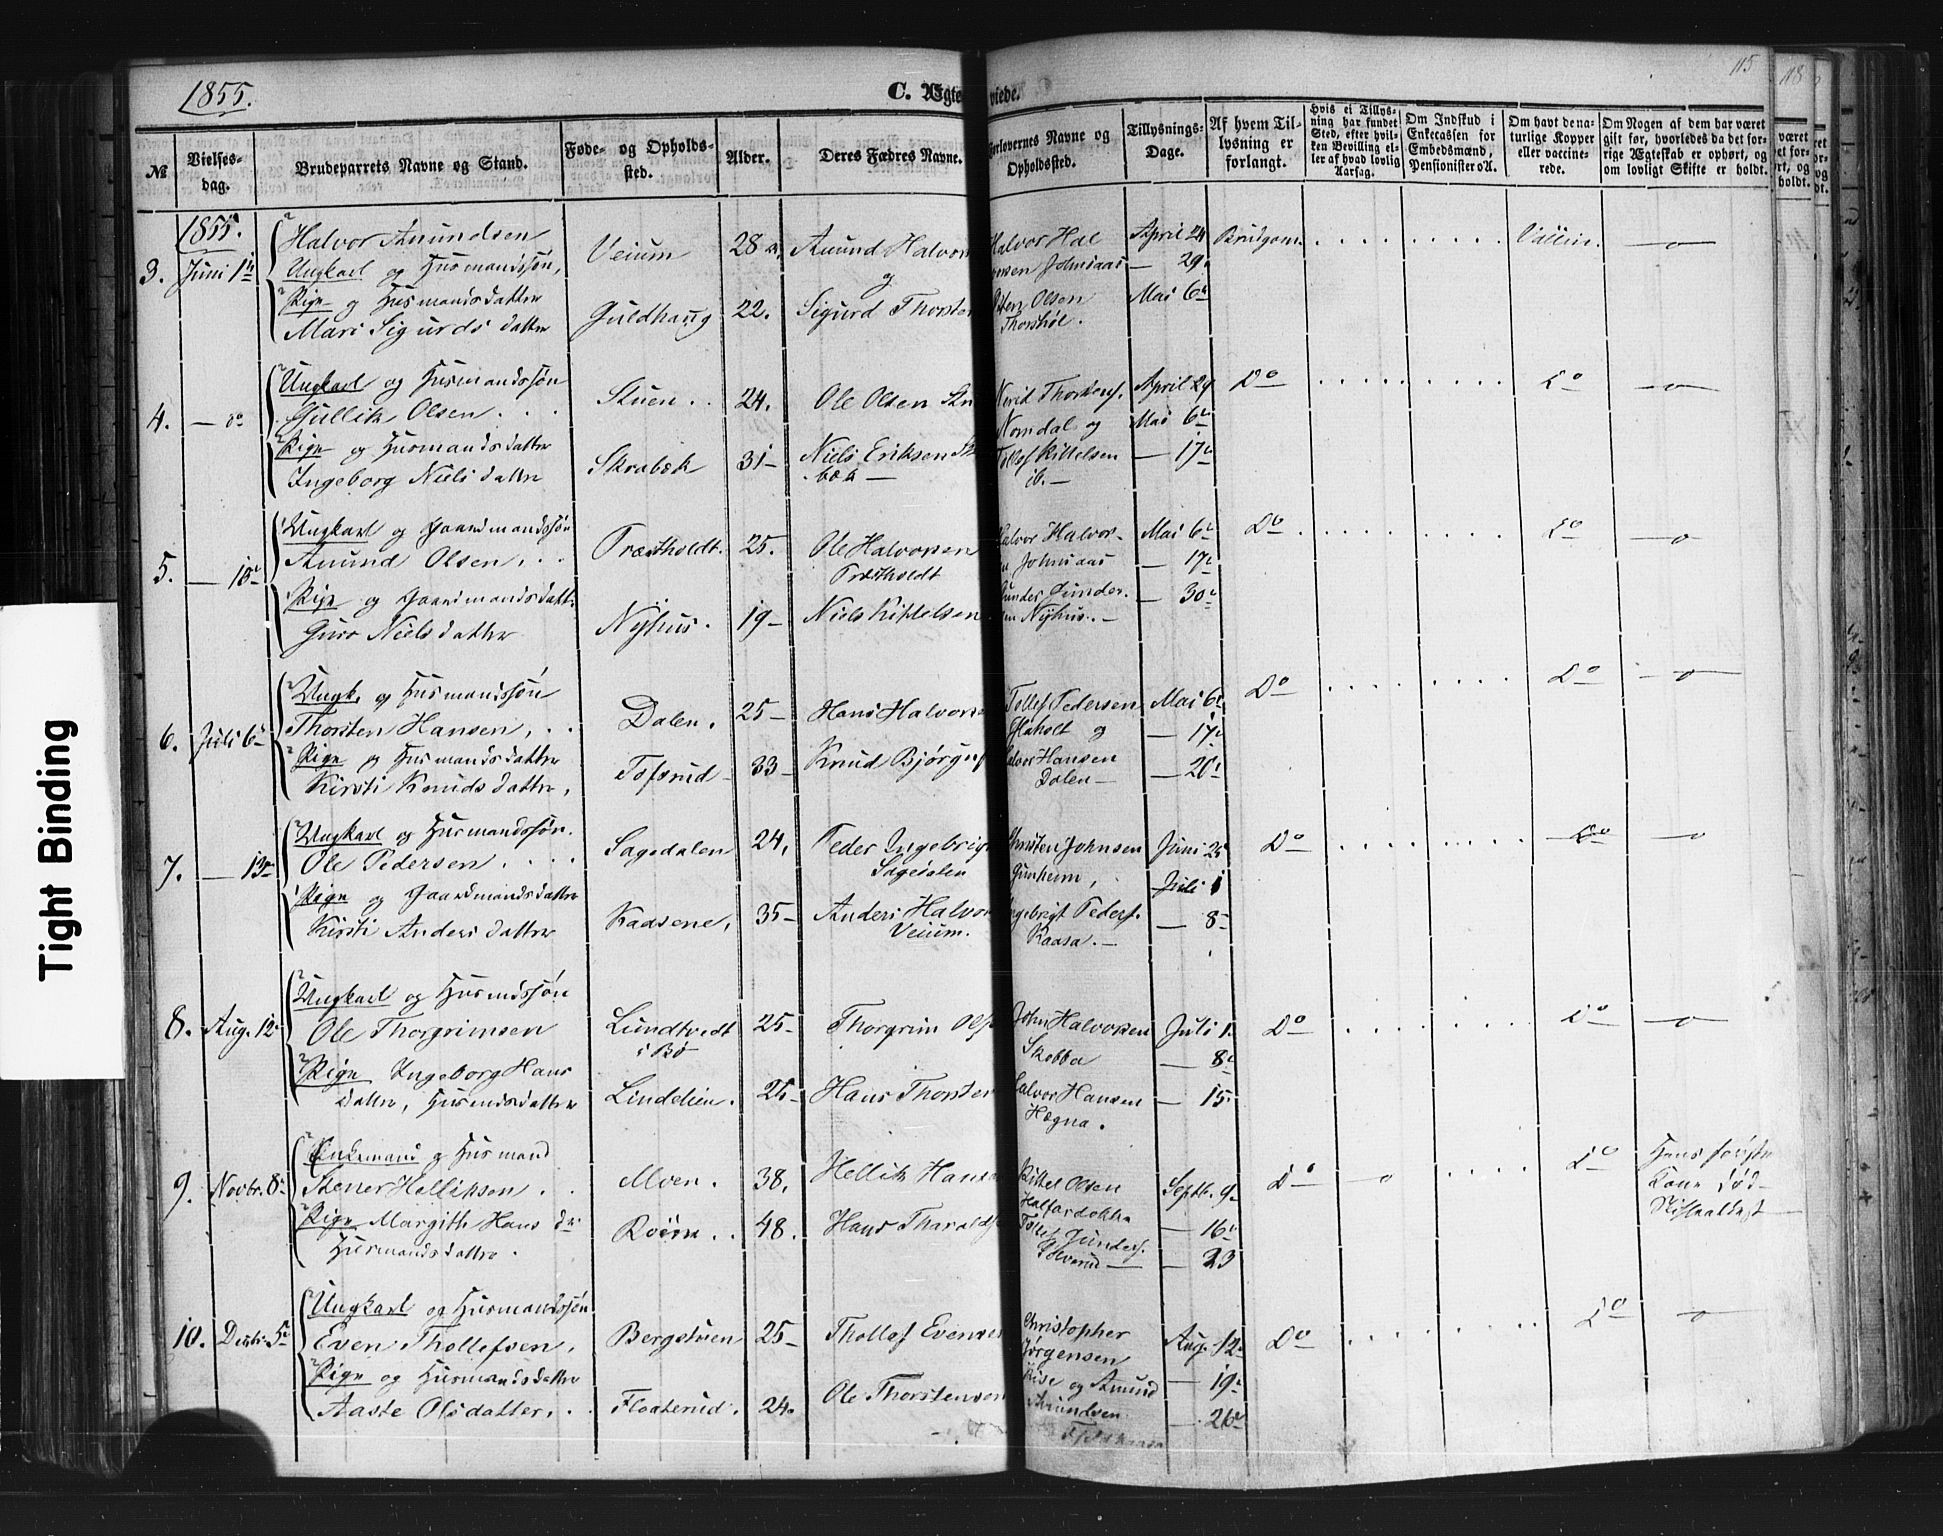 1855.
C. Ægte viede.
115
118
№
Vielses-dag.
Brudeparrets Navne og Stand.
Føde- og Opholds-sted.
Alder.
Deres Fædres Navne.
Forlovernes Navne og Opholdssted.
Tillysnings-Dage.
Af hvem Til-lysning er forlangt.
Hvis ei Tillys-ning har fundet Sted, efter hvil-ken Bevilling el-ler af hvad lovlig Aarsag.
Om Indskud i Enkecassen for Embedsmænd, Pensionister o. A.
Om havt dena-turlige Kopper eller vaccine-rede.
Om Nogen af dem har været gift før, hvorledes da det for-rige Ægteskab er ophørt, og om lovligt Skifte er holdt.
1855.
3. Juni 1
Halvor Amundsen
Ungkarl og Husmandssøn,
Pige og Husmandsdatter
Mari Sigurdsdatter
Veium 28
Guldhaug 22.
Amund Halvor
og
Sigurd Thorsten
Halvor Hal
sen Johnsaas
Olsen
Thorshol.
April 24
— 29.
Mai 6
Brudgom. Vaccin. —o—
4. — do
Ungkarl og Husmandssøn
Gullik Olsen . . .
Pige og Husmandsdatter
Ingeborg Nielsdatter
Stuen . . 24.
Skrabek 31 —
Ole Olsen
Niels Eriksen
bæk —
Thorstens.
Nomdal og
Tollef Kittelsen
ib. —
April 29
Mai 6
— 17
Do Do —o—
5. — 15
Ungkarl og Gaardmandssøn
Amund Olsen . . .
Pige og Gaardmandsdatt.
Guro Nielsdatter
Præstholdt. 25.
Nÿhus. 19 —
Ole Halvorsen
Præstholdt
Niels Kittelsen
Halvor Halvor-
Johnsaas
Gunder Gunder.
Nÿhus. —
Mai 6
— 17
— 30
Do Do —o—
6. Juli 6
Ungk. og Husmandssøn
Thorsten Hansen, . .
Pige og Husmandsdatter
Kirsti Knudsdatter,
Dalen. 25 —
Tofsrud 33 —
Hans Halvorsen
Knud Bjørgufs
Tollef Pedersen
og
Halvor Hansen
Dalen —
Mai 6
— 17
— 20
Do Do —o—
7. — 13
Ungkarl og Husmandssøn.
Ole Pedersen . . . .
Pige og Gaardmandsdatter
Kirsti Andersdatter
Sagedalen 24,
Kaasene, 35 —
Peder Ingebrig
Sagedalen
Anders Halvor
Veium.
Christen Johnsen
Gunheim,
Ingebrigt Peders.
Kaasa. —
Juni 25
Juli 1
— 8
Do Do —o—
8. Aug. 12
Ungkarl og Husmdssøn
Ole Thorgrimsen
Pige Ingeborg Hans
Datter, Husmdsdatter
Lundtvedt
i Bø 25 —
Lindelien. 25 —
Thorgrim Ols
Hans Thorsten
John Halvorsen
Skobba
Halvor Hansen
Hægna.
Juli 1.
— 8
— 15
Do Do —o—
9. Novbr. 8
Enkemand og Husmand
Stener Helliksen . .
Pige Margith Hans dr
Husmandsdatter.
Moen. 38.
48.
Hellik Hans
Hans Tharalds
Kittel Olsen
Tollef Gunders.
Septb. 9
— 16
— 23
Do —o— Do
Hans første
Kone død
10. Decbr. 5
Ungkarl og Husmandssøn
Even Thollefsen,
Pige og Husmandsdatter
Aaste Olsdatter. . .
Bergstuen 25 —
Flaaterud. 24.
Thollef Evensen
Ole Thorstensen
Christopher
Jørgensen
og Amund
Amundsen
Aug. 12
— 19
— 26
Do Do —o—
Tight Binding